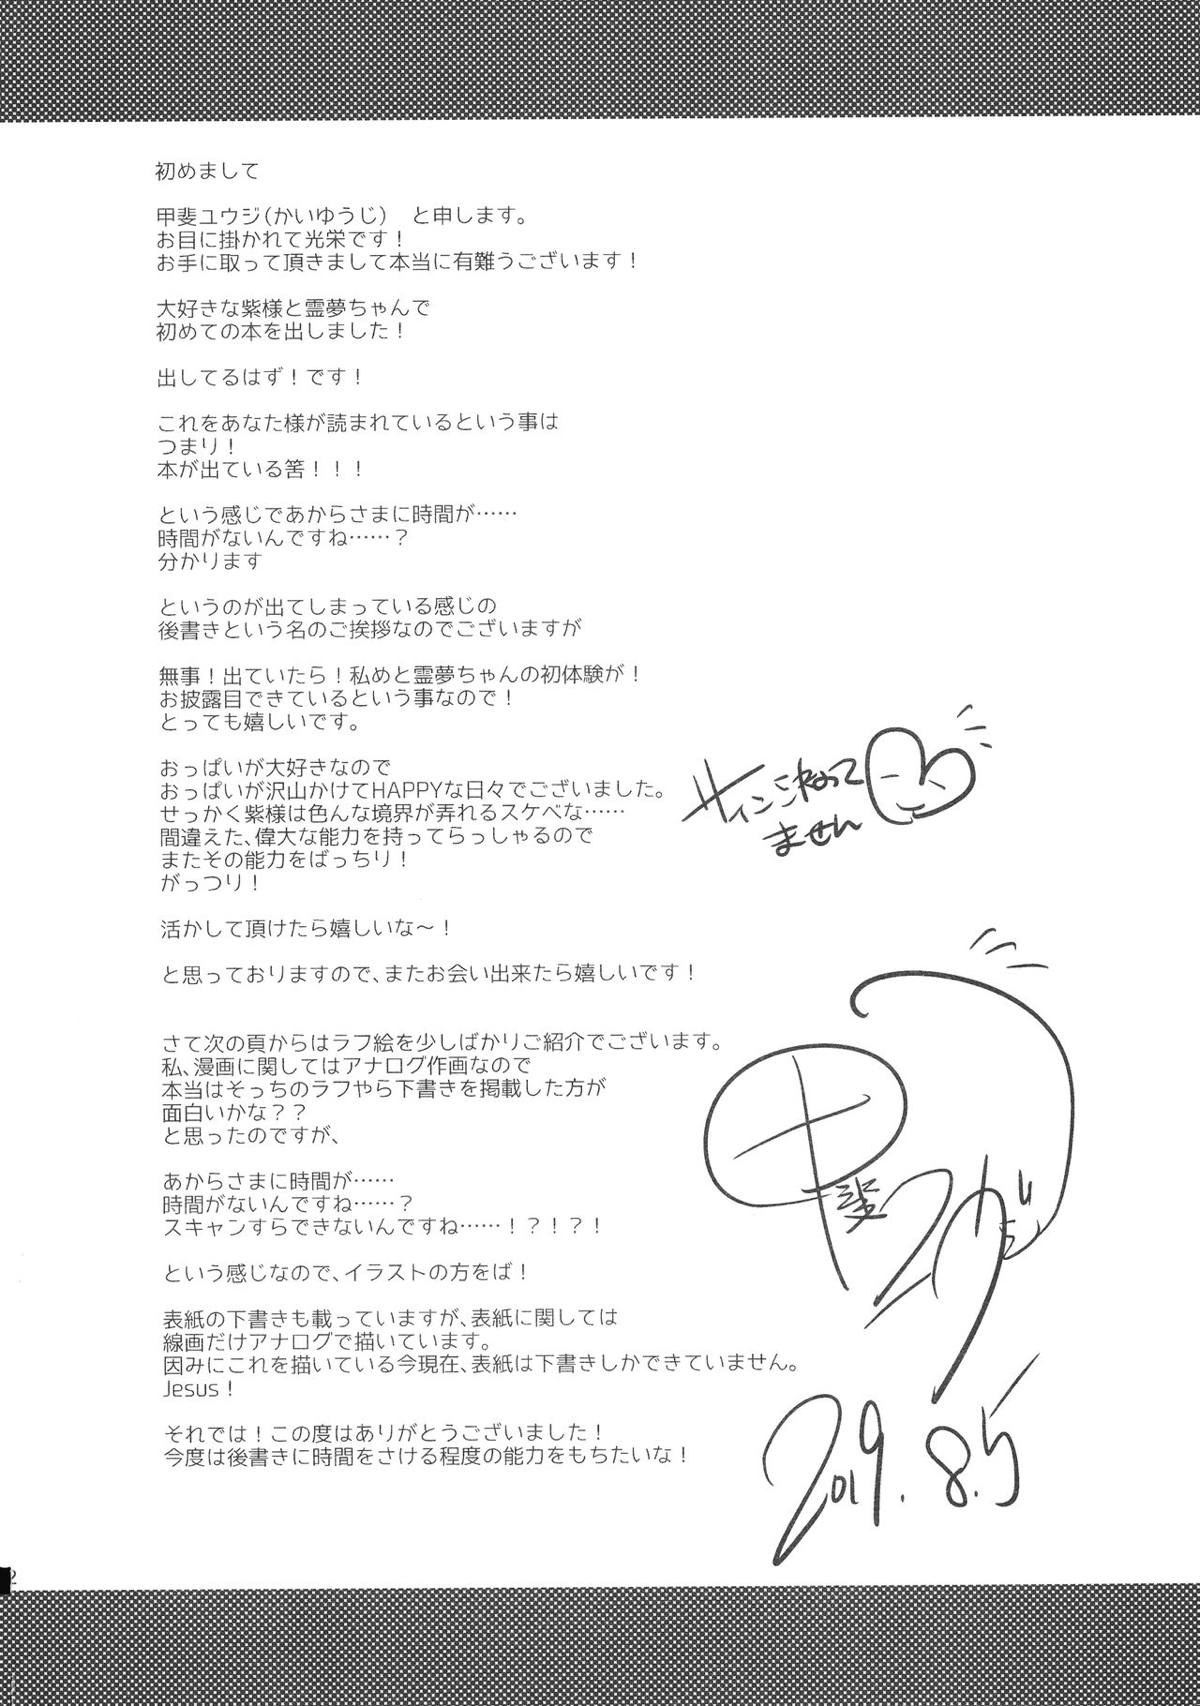 初めまして
甲斐ユウジ（かいゆうじ）　と申します。
お目に掛かれて光栄です！
お手に取って頂きまして本当に有難うございます！
大好きな紫様と霊夢ちゃんで
初めての本を出しました！
出してるはず！です！
これをあなた様が読まれているという事は
つまり！
本が出ている筈！！！
という感じであからさまに時間が……
時間がないんですね……？
分かります
というのが出てしまっている感じの
後書きという名のご挨拶なのでございますが
無事！出ていたら！私めと霊夢ちゃんの初体験が！
お披露目できているという事なので！
とっても嬉しいです。
おっぱいが大好きなので
おっぱいが沢山かけてHAPPYな日々でございました。
せっかく紫様は色んな境界が弄れるスケベな……
間違えた、偉大な能力を持ってらっしゃるので
またその能力をばっちり！
がっつり！
活かして頂けたら嬉しいな～！
と思っておりますので、またお会い出来たら嬉しいです！
さて次の頁からはラフ絵を少しばかりご紹介でございます。
私、漫画に関してはアナログ作画なので
本当はそっちのラフやら下書きを掲載した方が
面白いかな？？
と思ったのですが、
あからさまに時間が……
時間がないんですね……？
スキャンすらできないんですね……！？！？！
という感じなので、イラストの方をば！
表紙の下書きも載っていますが、表紙に関しては
線画だけアナログで描いています。
因みにこれを描いている今現在、表紙は下書きしかできていません。
Jesus！
それでは！この度はありがとうございました！
今度は後書きに時間をさける程度の能力をもちたいな！
サイン決まって
ません
甲斐ユウジ
2019.8.5
2